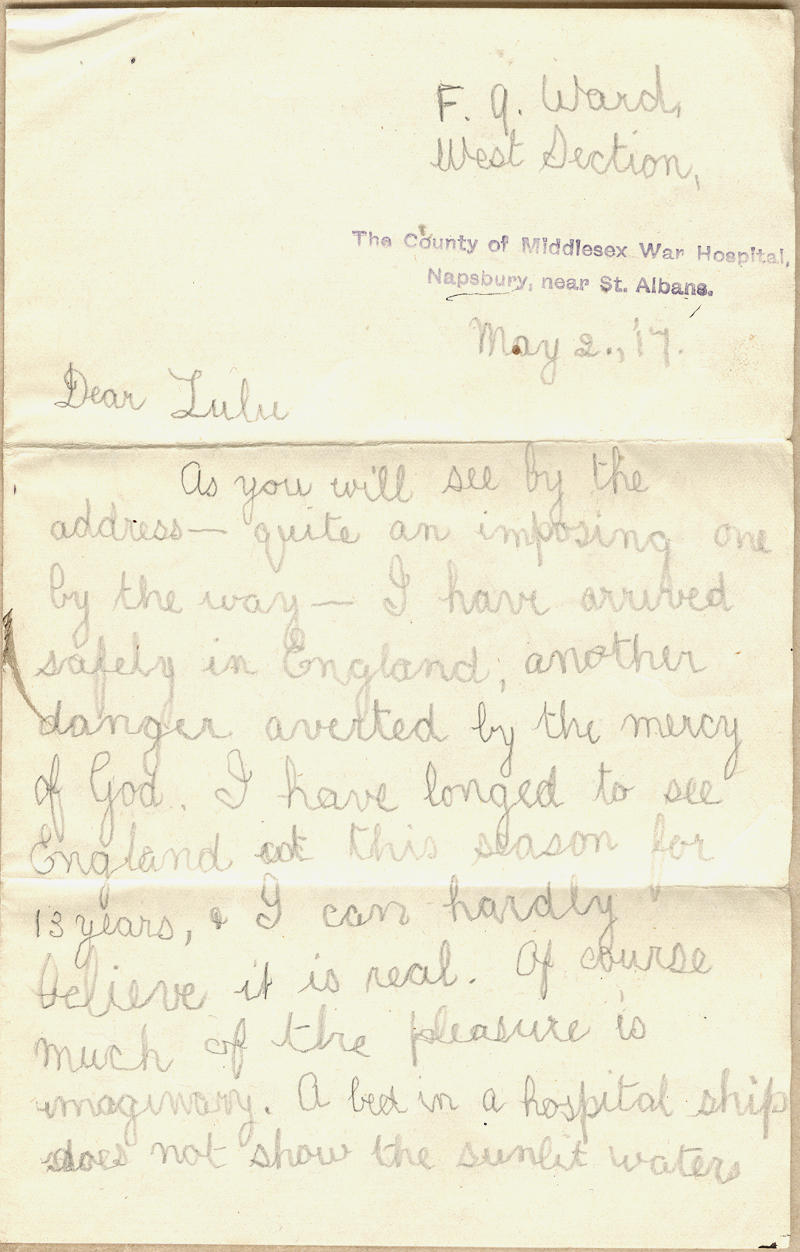 F. 9. Ward,
West Section,
The County of Middlesex War Hospital,
Napsbury, near St. Albans.
May 2., '17.
Dear Lulu
As you will see by the
address — quite an imposing one
by the way — I have arrived
safely in England, another
danger averted by the mercy
of God. I have longed to see
England at this season for
13 years, & I can hardly
believe it is real. Of course
much of the pleasure is
imaginary. A bed in a hospital ship
does not show the sunlit waters